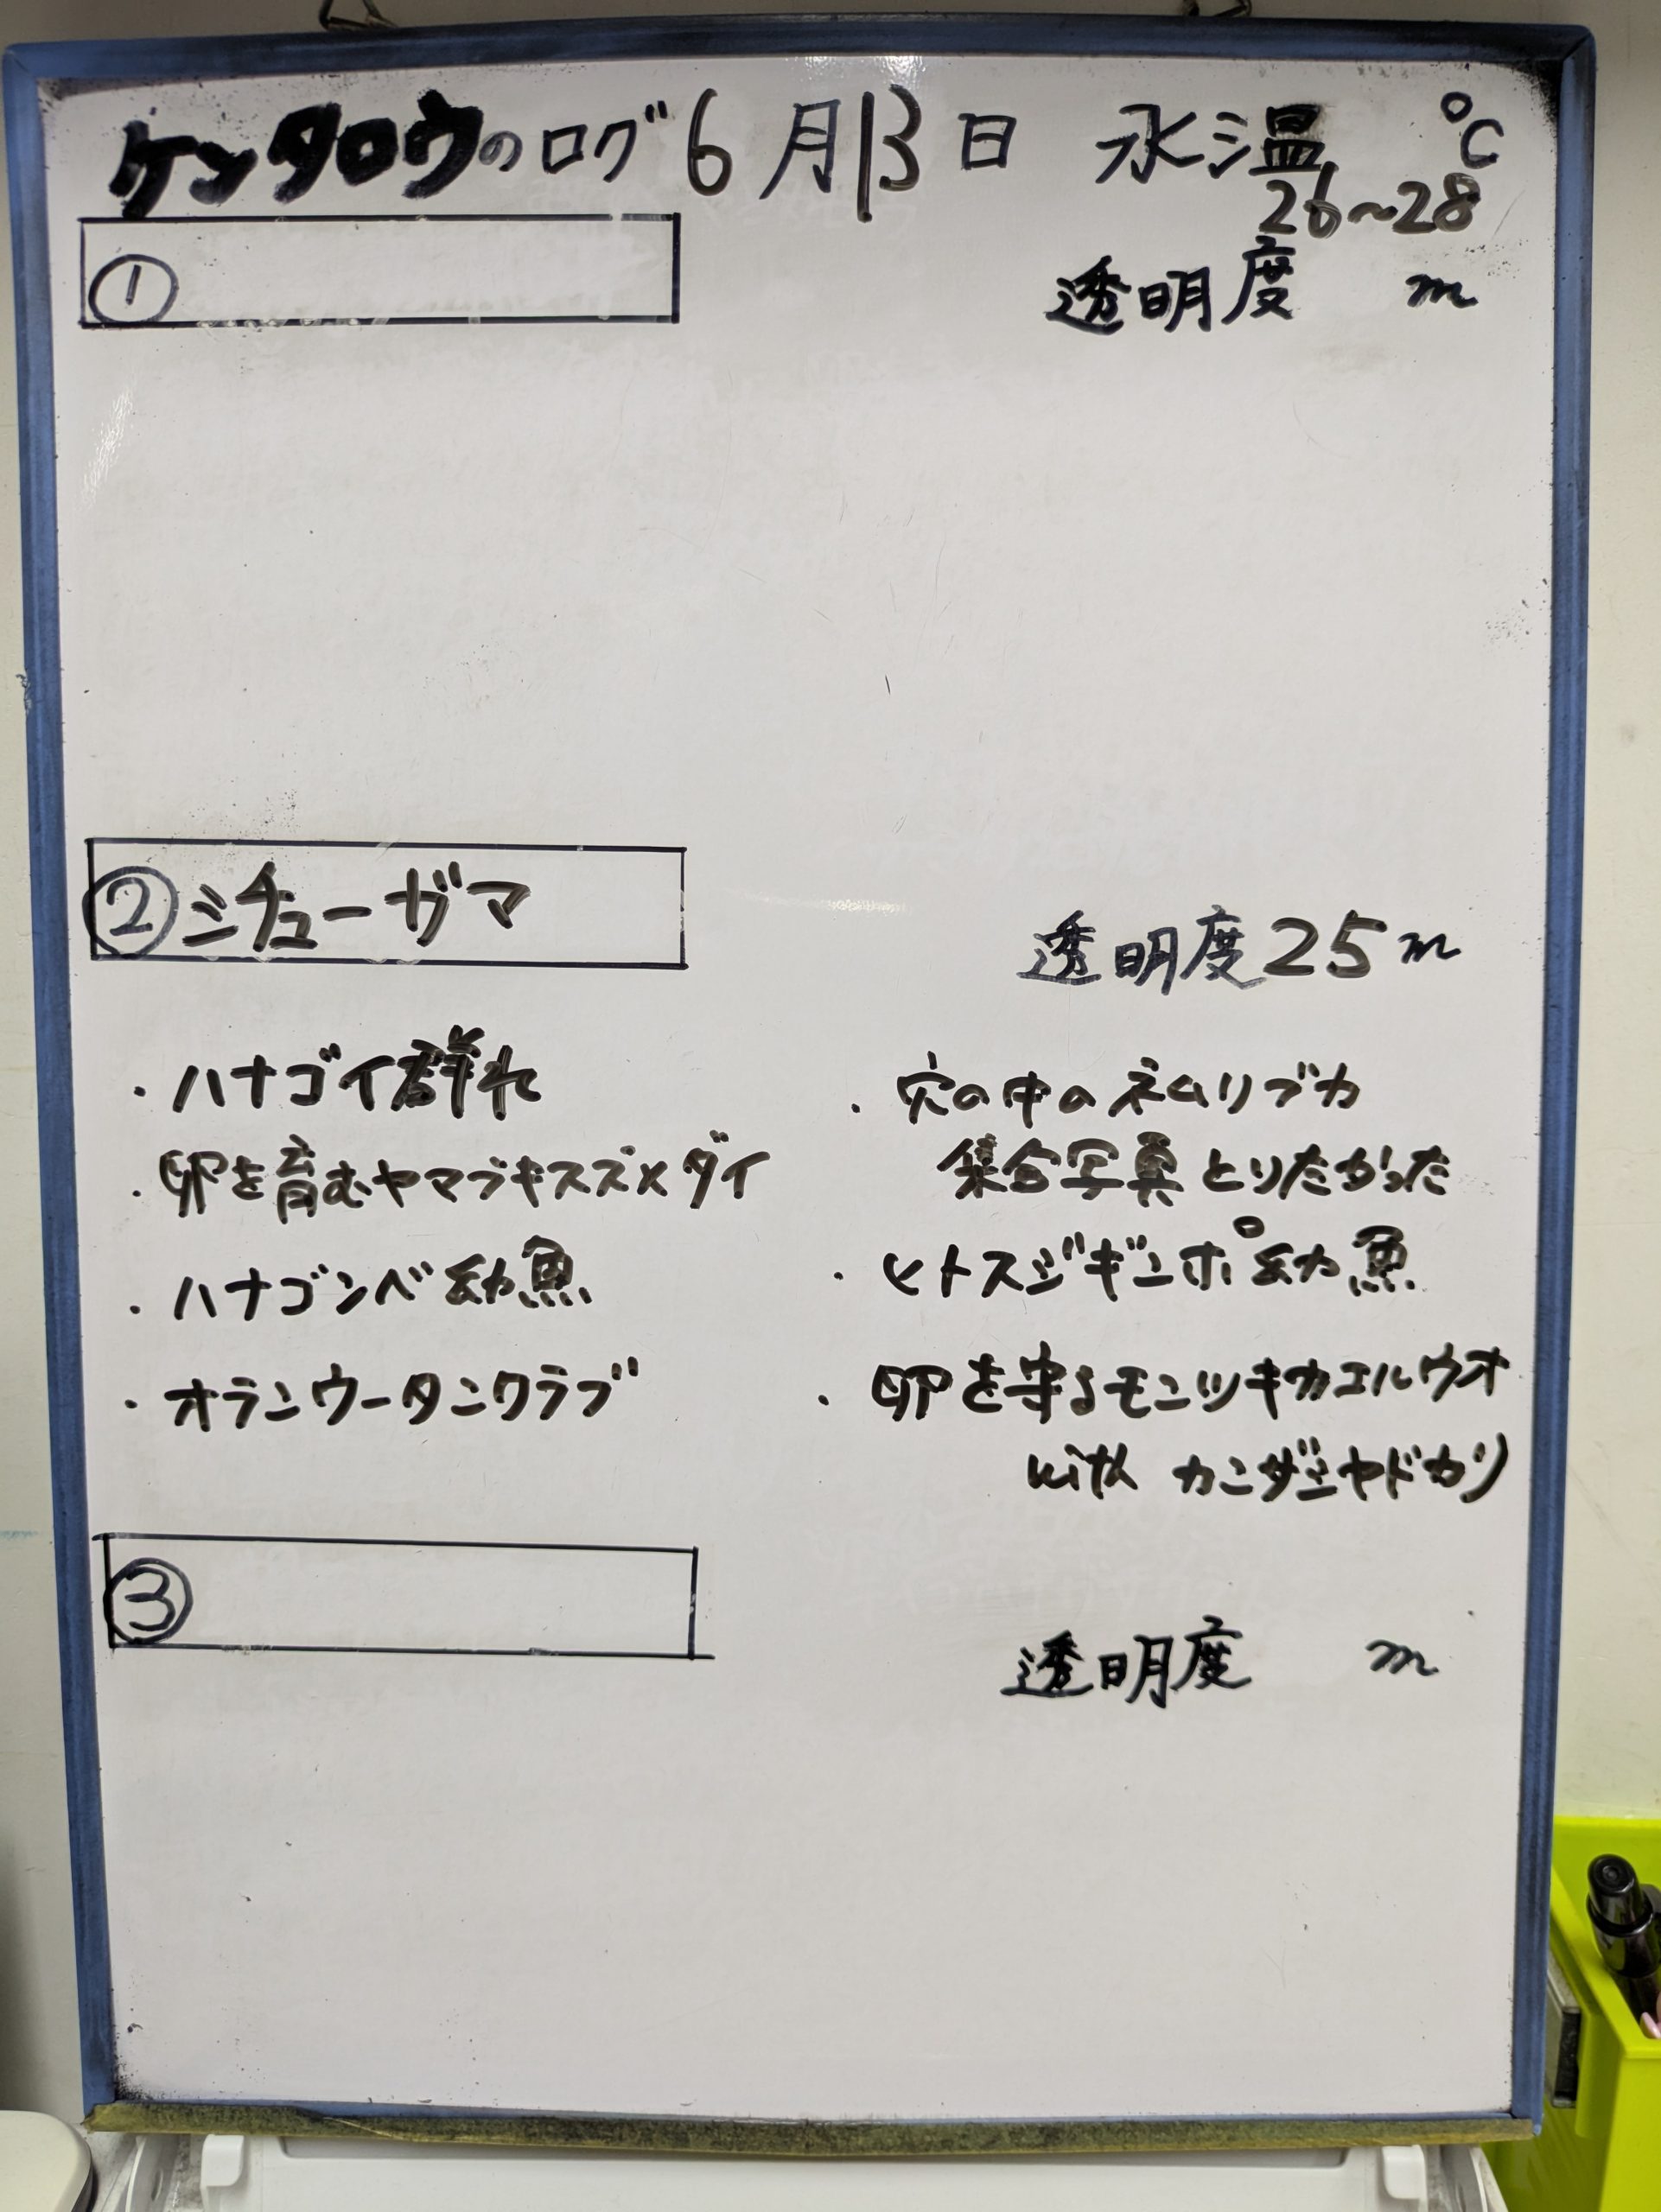 ケンタロウのログ 6月13日 水温 26~28 ℃
① 透明度 m
② ミチューガマ
透明度 25 m
・ハナゴイ群れ
・卵を育むヤマブキスズメダイ
・ハナゴンベ幼魚
・オランウータンクラブ
・穴の中のネムリブカ
集合写真とりたかった
・ヒトスジギンポ幼魚
・卵を守るモンツキカエルウオ
with カンザシヤドカリ
③
透明度 m